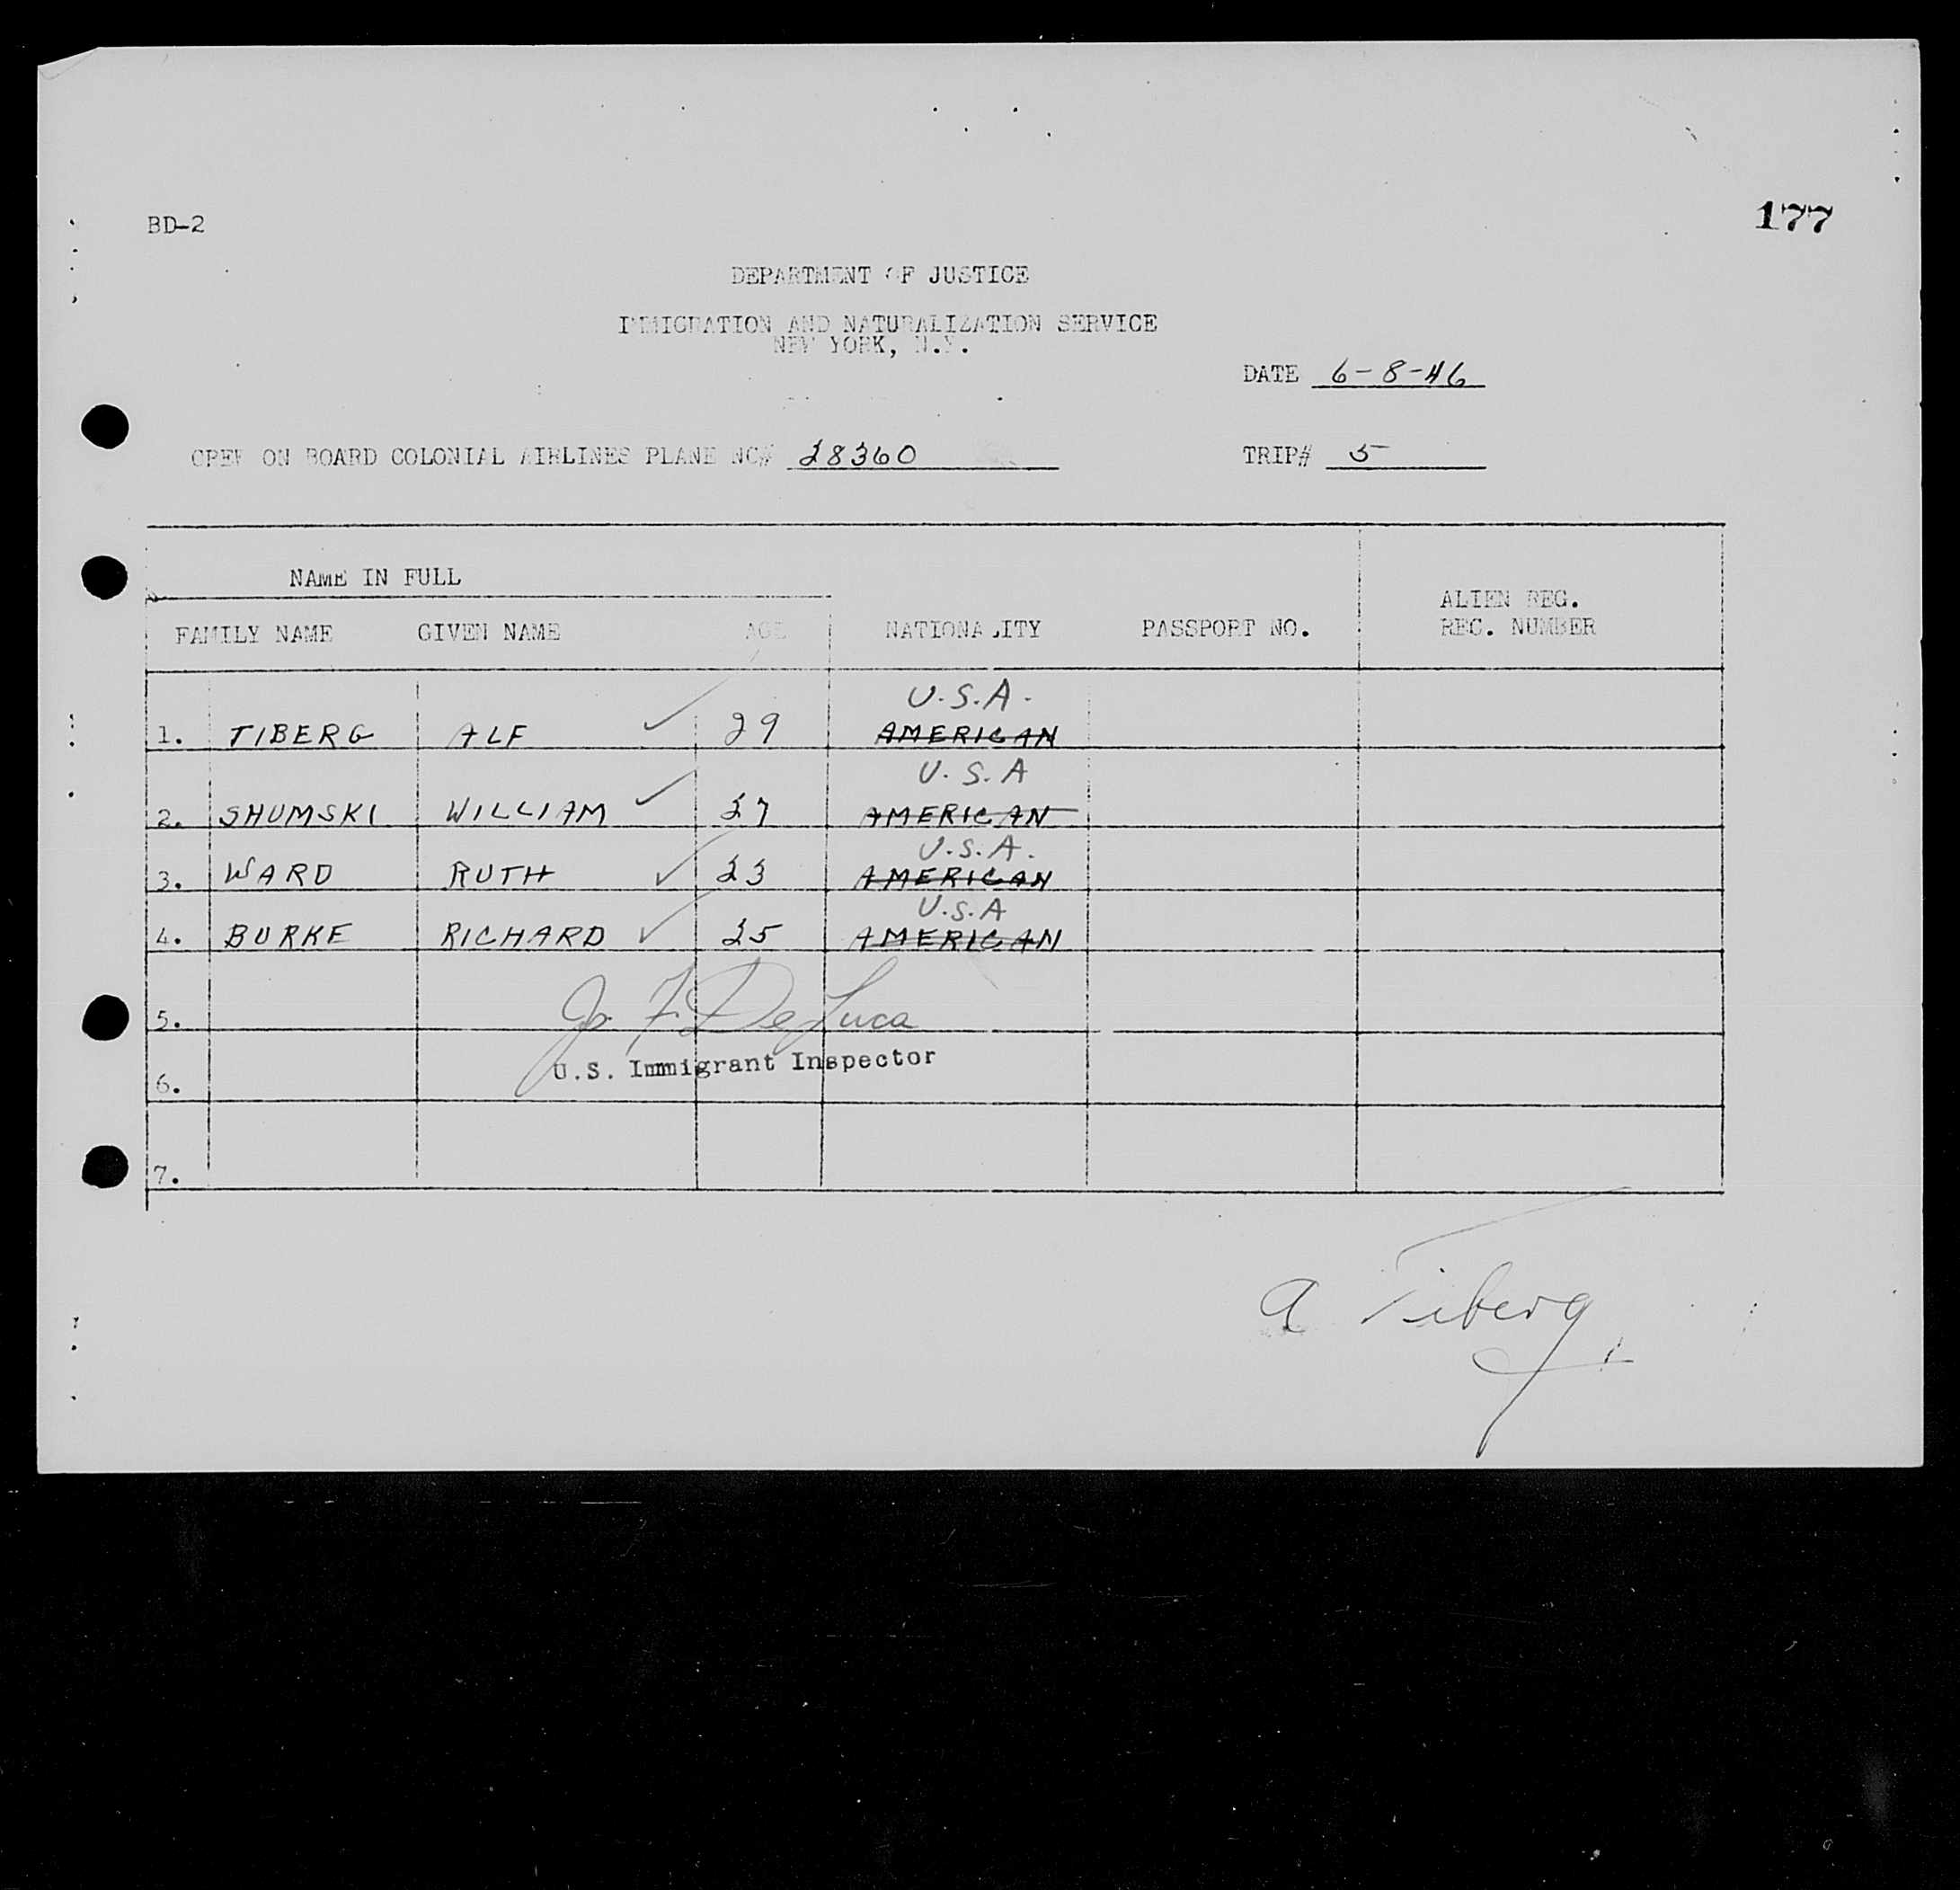 BD-2
177
DEPARTMENT OF JUSTICE
IMMIGRATION AND NATURALIZATION SERVICE
NEW YORK, N.Y.
DATE 6-8-46
CREW ON BOARD COLONIAL AIRLINES PLANE NO# 28360 TRIP# 5
NAME IN FULL
FAMILY NAME GIVEN NAME AGE NATIONALITY PASSPORT NO. ALIEN REG. REC. NUMBER
U.S.A.
1. TIBERG ALF ✓ 29 AMERICAN
U.S.A
2. SHUMSKI WILLIAM ✓ 27 AMERICAN
U.S.A.
3. WARD RUTH ✓ 23 AMERICAN
U.S.A
4. BURKE RICHARD ✓ 25 AMERICAN
5. F. DeLuca
U.S. Immigrant Inspector
6.
7.
A Tiberg